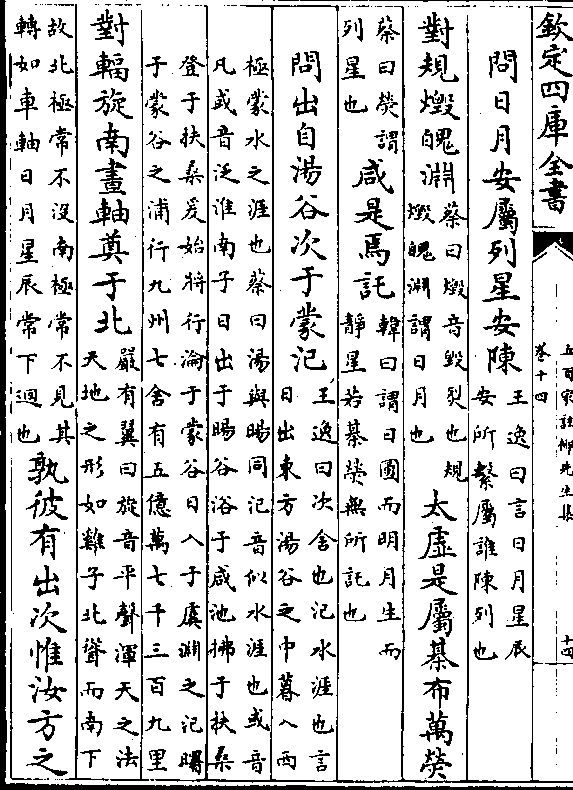 欽定四庫全書
五百家註柳先生集
卷十四
十四
問日月安屬列星安陳
王逸曰言日月星辰
安所繫屬誰陳列也
對規燬魄淵
蔡曰燬音毀裂也規
燬魄淵謂日月也
太虛是屬棊布萬熒
蔡曰熒謂
列星也
咸是焉託
韓曰謂日圓而明月生而
靜星若棊熒無所託也
問出自湯谷次于蒙汜
王逸曰次舍也汜水涯也言
日出東方湯谷之中暮入西
極蒙水之涯也蔡曰湯與暘同汜音似水涯也或音
凡或音泛淮南子日出于暘谷浴于咸池拂于扶桑
登于扶桑爰始將行淪于蒙谷日入于虞淵之汜曙
于蒙谷之浦行九州七舍有五億萬七千三百九里
對輻旋南畫軸奠于北
嚴有翼曰旋音平聲渾天之法
天地之形如雞子北聳而南下
故北極常不没南極常不見其
轉如車軸日月星辰常下迴也
孰彼有出次惟汝方之